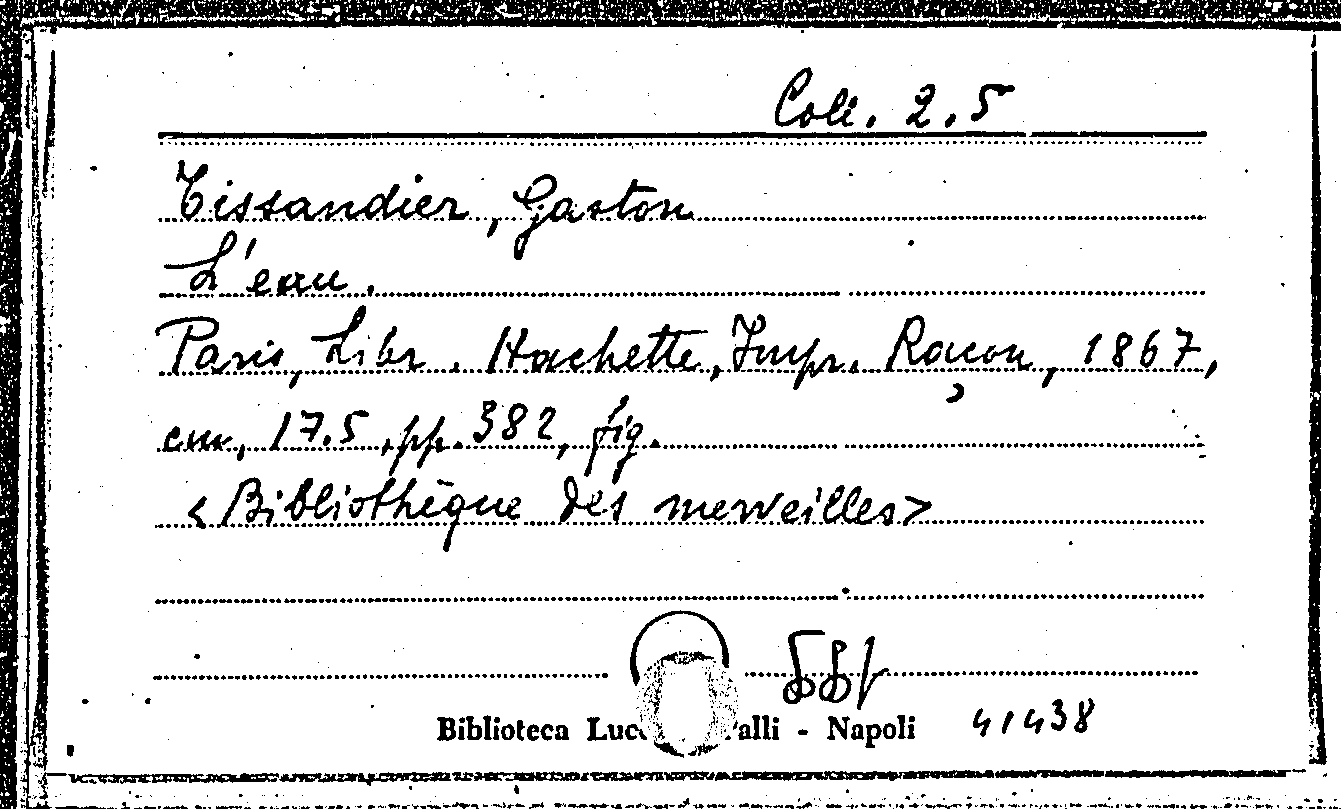 Coll. 2.5
Tissandier, Gaston
L'eau.
Paris, Libr. Hachette, Impr. Raçon, 1867,
cm, 17.5, pp. 382, fig.
<Bibliothèque des merveilles>
Biblioteca Luc alli - Napoli 41438